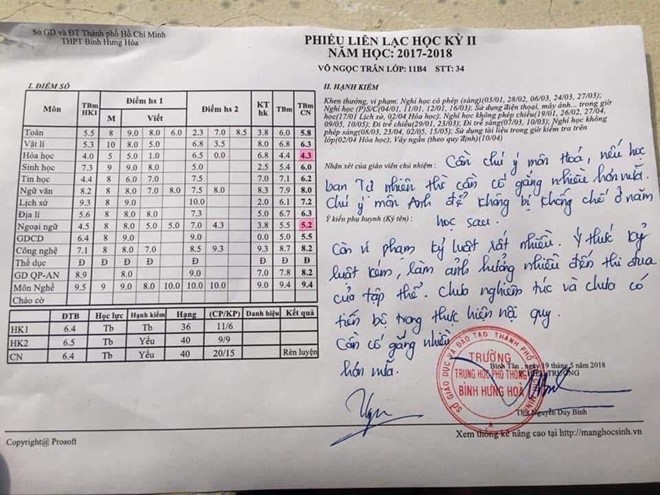 Sở GD và ĐT Thành phố Hồ Chí Minh
THPT Bình Hưng Hòa
PHIẾU LIÊN LẠC HỌC KỲ II
NĂM HỌC: 2017-2018
VÕ NGỌC TRÂN LỚP: 11B4 STT: 34
I. ĐIỂM SỐ
Môn TBm HK1 Điểm hs 1 Điểm hs 2 KT hk TBm TBm CN
M Viết
Toán 5.5 8 9.0 8.0 6.0 2.3 7.0 8.5 3.8 6.0 5.8
Vật lí 5.3 10 8.0 5.0 6.8 3.5 8.0 6.8 6.3
Hóa học 4.0 5 5.0 1.0 6.5 0.0 6.8 4.4 4.3
Sinh học 7.3 9 9.0 8.0 5.0 2.5 5.4 6.0
Tin học 4.4 8 6.0 7.0 7.5 6.2
Ngữ văn 8.2 8 8.0 7.0 8.0 7.5 8.0 8.3 7.9 8.0
Lịch sử 9.3 8 9.0 10.0 2.0 6.1 7.2
Địa lí 5.6 8 8.0 8.0 7.3 5.0 6.7 6.3
Ngoại ngữ 4.5 8 8.0 5.0 5.0 7.0 4.0 3.8 5.5 5.2
GDCD 6.4 8 9.0 9.0 0.0 5.5
Công nghệ 7.1 8 8.0 7.0 8.5 9.3 9.3 8.7 8.2
Thể dục Đ Đ Đ Đ Đ Đ Đ
GD QP-AN 8.9 8.0 9.0 7.0 7.8 8.2
Môn Nghề 9.5 9 9.0 8.0 10.0 10.0 10.0 9.0 9.4 9.4
Chào cờ
ĐTB Học lực Hạnh kiểm Hạng (CP/KP) Danh hiệu Kết quả
HK1 6.4 Tb Tb 36 11/6
HK2 6.5 Tb Yếu 40 9/9
CN 6.4 Tb Yếu 40 20/15 Rèn luyện
II. HẠNH KIỂM
Khen thưởng, vi phạm: Nghỉ học có phép (sáng)(03/01, 28/02, 06/03, 24/03, 27/03);
Nghỉ học (P)S/C(04/01, 11/01, 12/01, 16/03); Sử dụng điện thoại, máy ảnh... trong giờ
học(17/01 Lịch sử, 02/04 Hóa học); Nghỉ học không phép chiều(19/01, 26/02, 27/04,
09/05, 10/05); Đi trễ chiều(19/01, 23/03); Đi trễ sáng(07/03, 10/03); Nghỉ học không
phép sáng(08/03, 23/04, 02/05, 15/05); Sử dụng tài liệu trong giờ kiểm tra trên
lớp(02/04 Hóa học); Váy ngắn (theo quy định)(10/04)
Nhận xét của giáo viên chủ nhiệm: Cần chú ý môn Hoá, nếu học
ban Tự nhiên thì cần cố gắng nhiều hơn nữa.
Chú ý môn Anh để không bị khống chế ở năm
Ý kiến phụ huynh (Ký tên): học sau.
Còn vi phạm kỷ luật rất nhiều. Ý thức kỷ
luật kém, làm ảnh hưởng nhiều đến thi đua
của tập thể. Chưa nghiêm túc và chưa có
tiến bộ trong thực hiện nội quy.
Cần cố gắng nhiều
hơn nữa.
Bình Tân, ngày 19 tháng 5 năm 2018
TRƯỜNG
TRUNG HỌC PHỔ THÔNG
BÌNH HƯNG HOÀ
Nguyễn Duy Bình
Copyright@ Prosoft
Xem thống kê nâng cao tại http://manghocsinh.vn